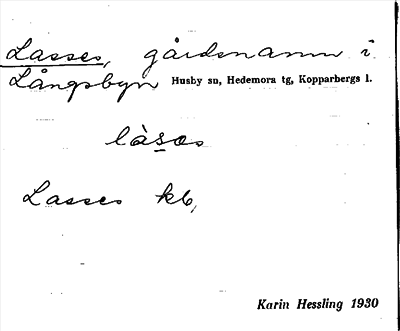 Lasses, gårdsnamn i
Långsbyn Husby sn, Hedemora tg, Kopparbergs l.
làsəs
Lasses kb,
Karin Hessling 1930